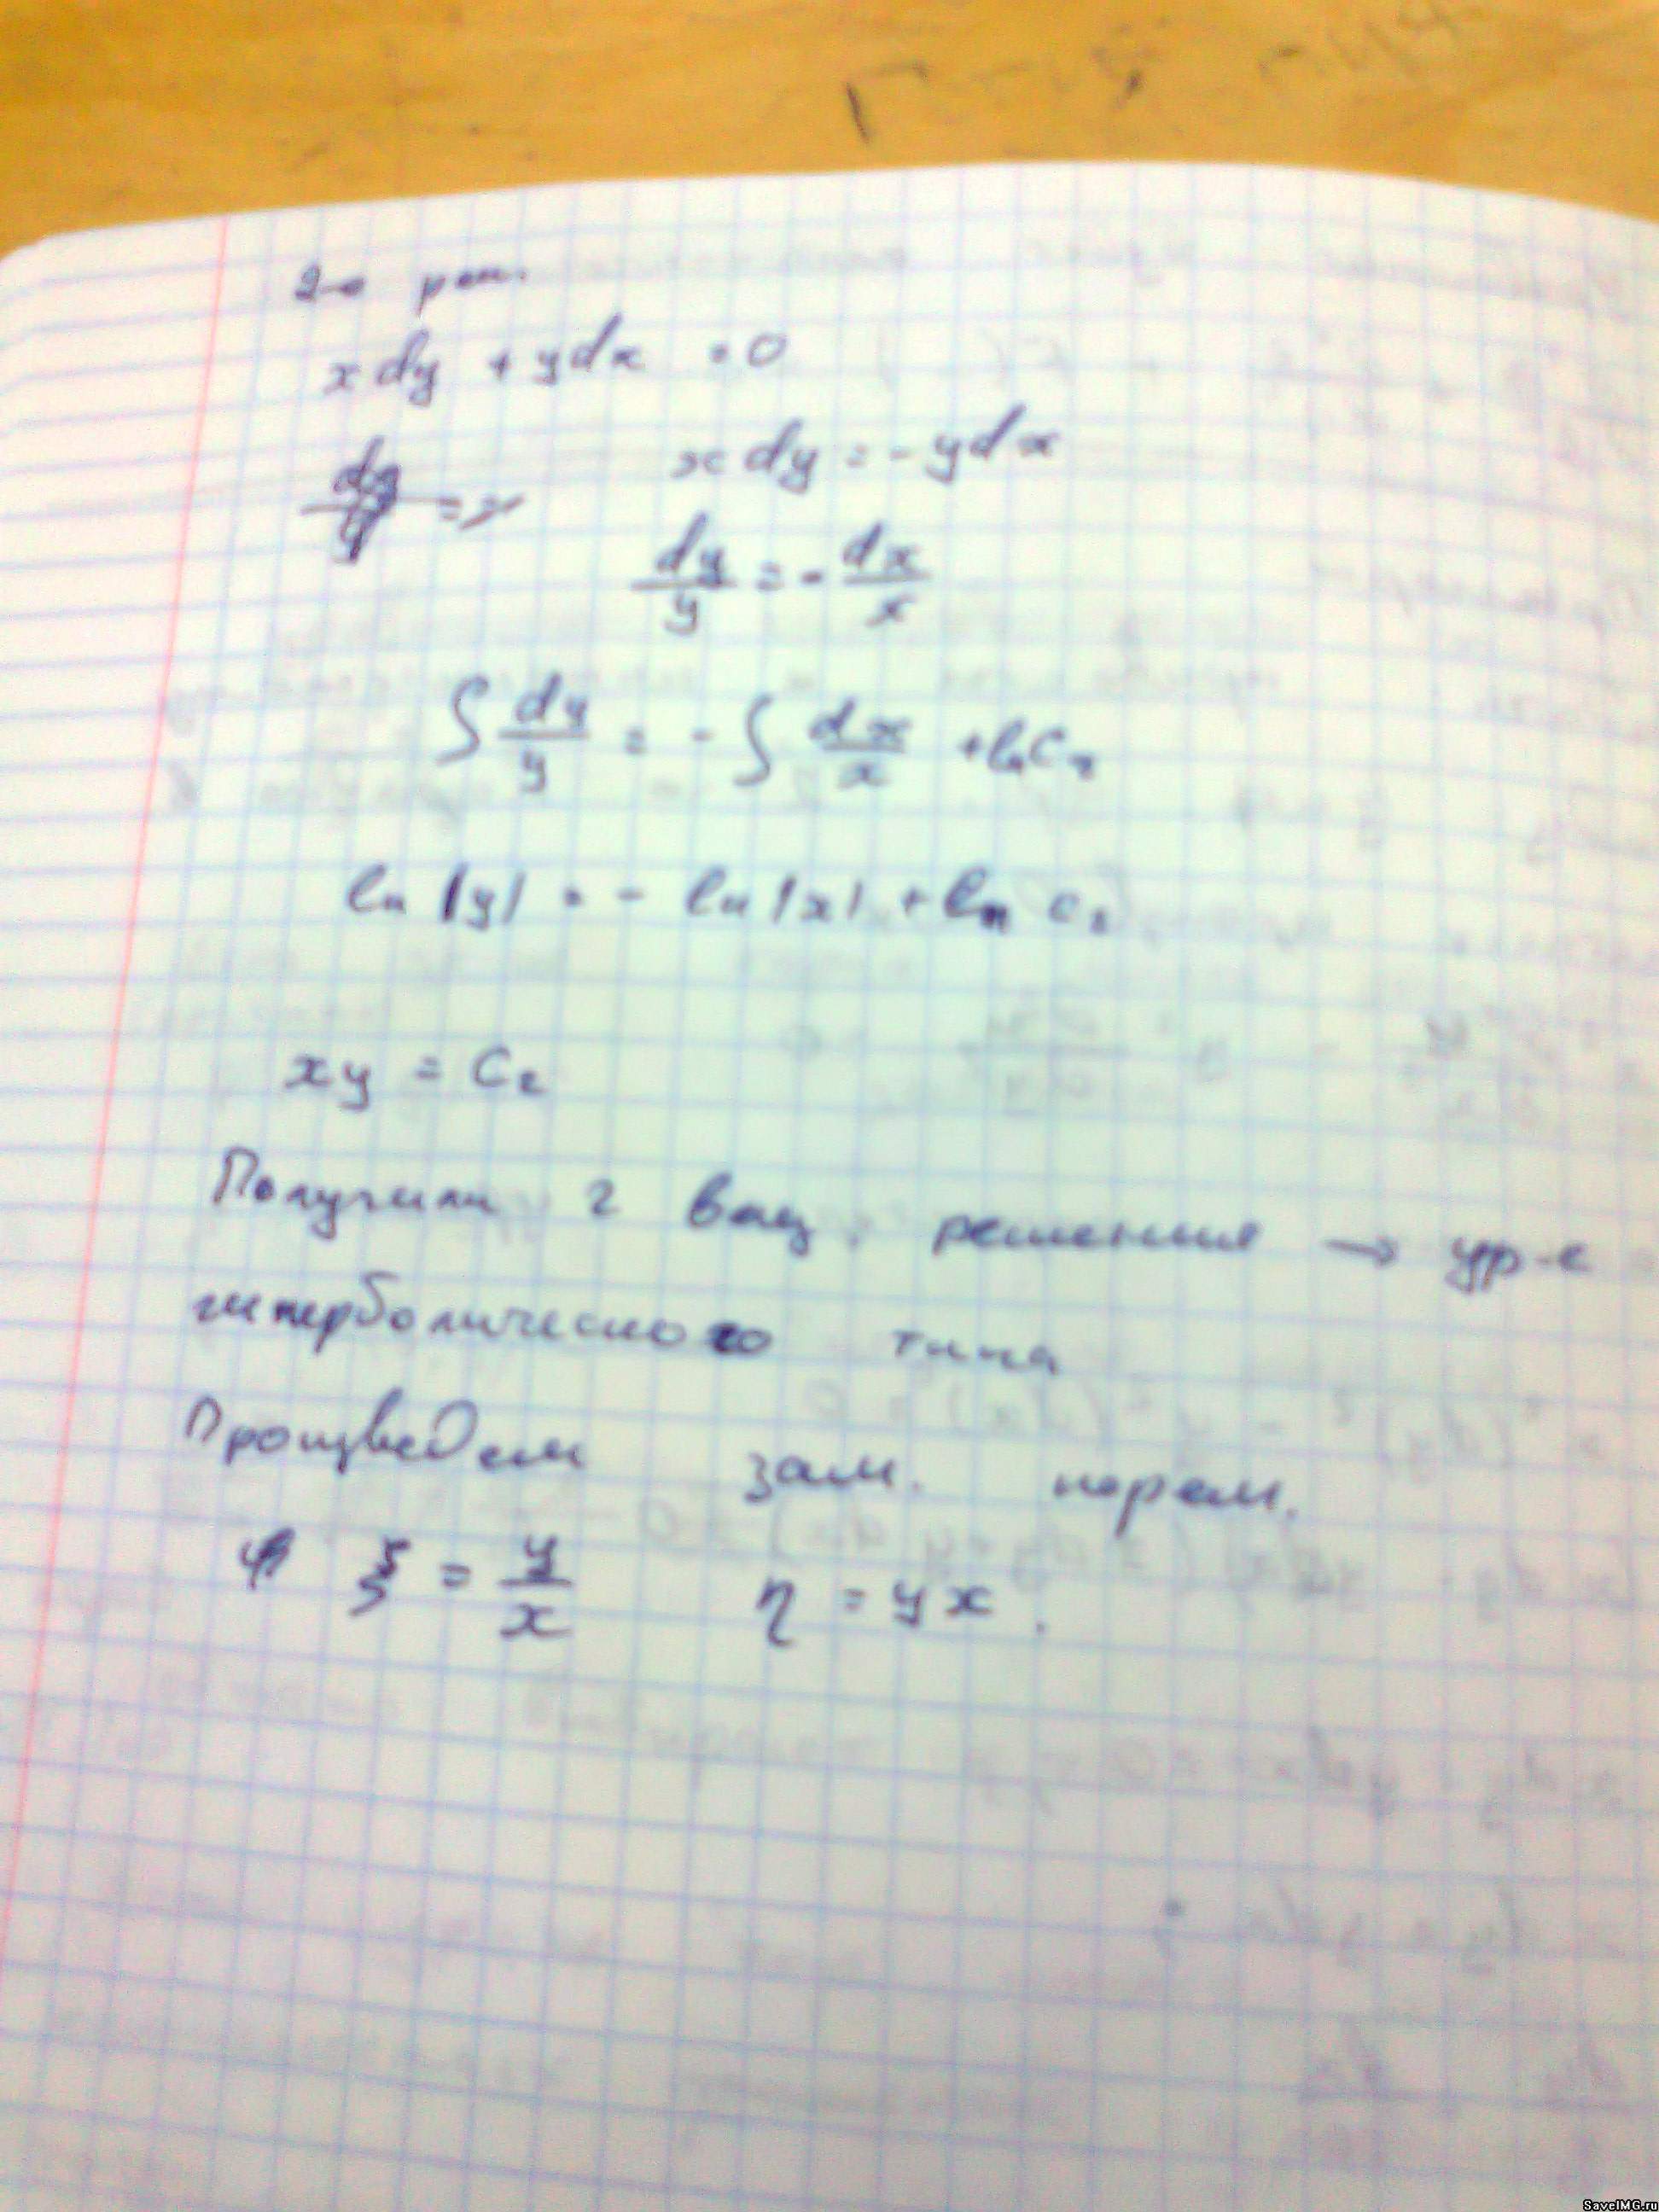 2-е реш.
xdy + ydx = 0
dy/y =
xdy = -ydx
dy/y = - dx/x
∫ dy/y = - ∫ dx/x + ln C₂
ln |y| = - ln |x| + ln C₂
xy = C₂
Получили 2 вещ. решения → ур-е
гиперболического типа
Произведем зам. перем.
ξ = y/x η = yx.
SaveIMG.ru